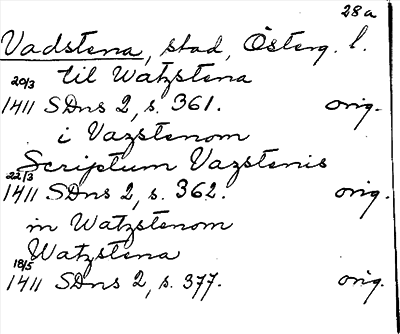 28a
Vadstena, stad, Österg. l.
til Watzstena
20/3 1411 SDns 2, s. 361. orig.
i Vazstenom
Scriptum Vazstenis
22/3 1411 SDns 2, s. 362. orig.
in Watzstenom
Watzstena
18/5 1411 SDns 2, s. 377. orig.